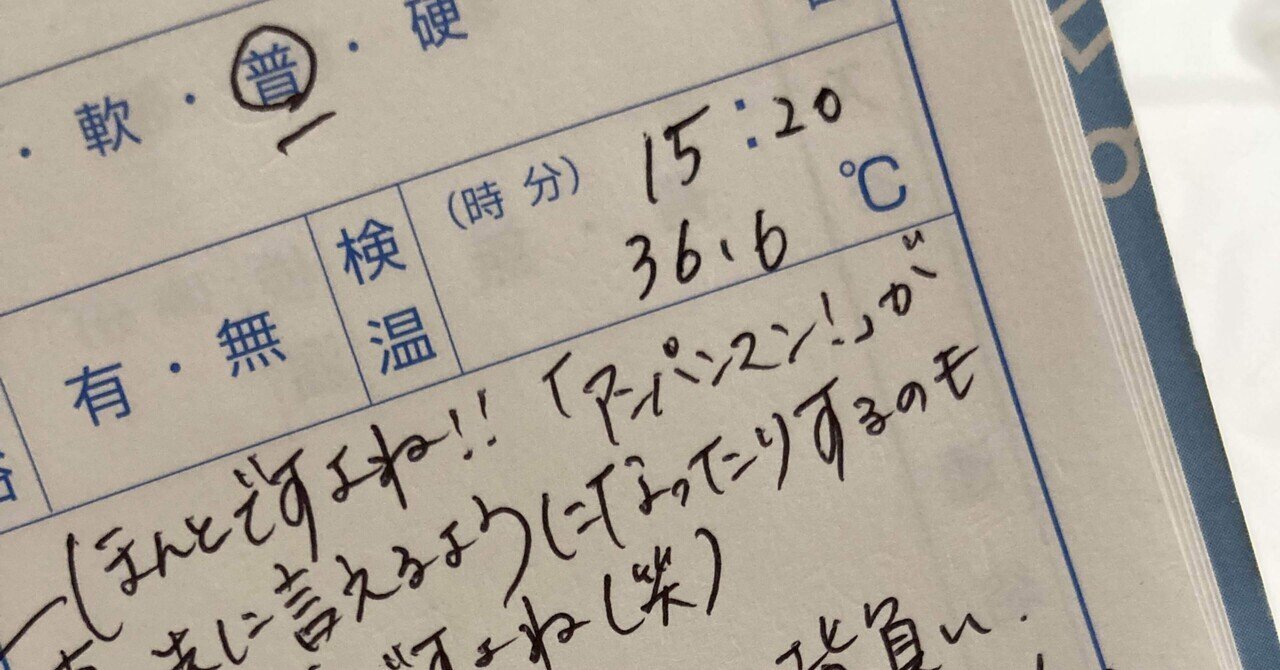 ・軟・普・硬
(時 分) 15:20
検温 36.6 ℃
有・無
ほんとですよね!!「アンパンマン!」が
に言えるようになったりするのも
すよね(笑)
背負い